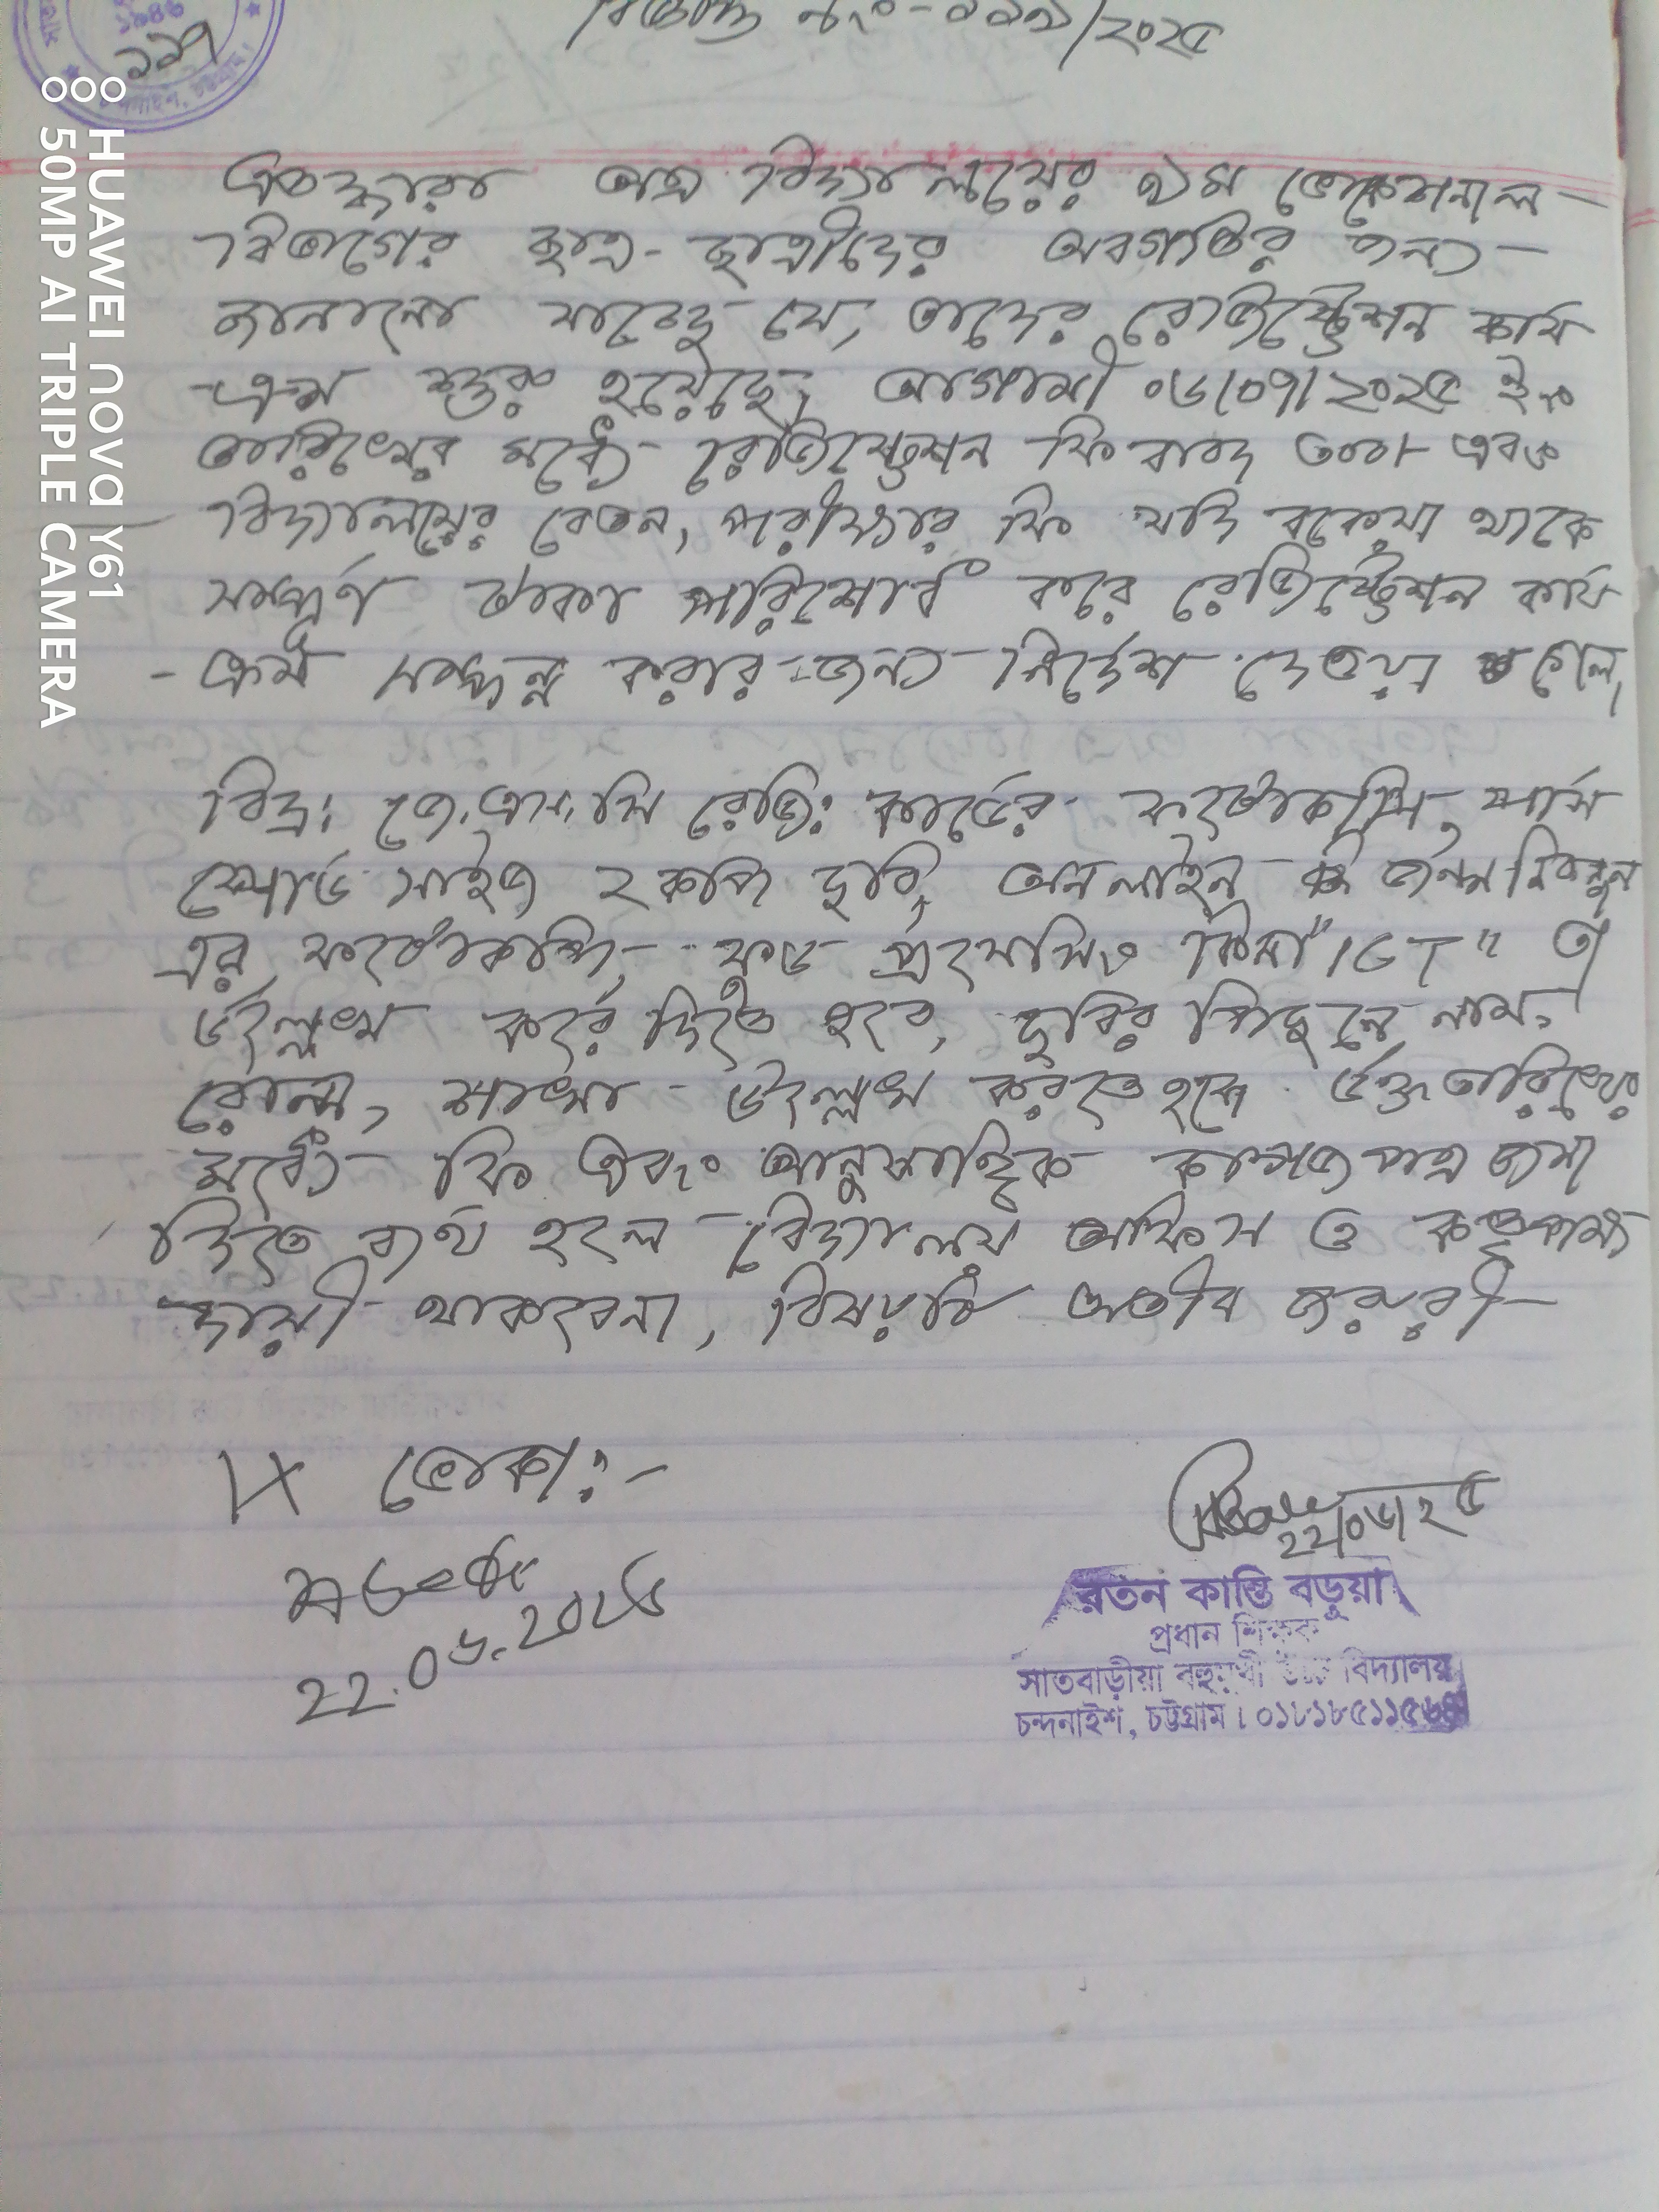 বিজ্ঞপ্তি নং০-১১৯/২০২৫
১১৭
এতদ্বারা অত্র বিদ্যালয়ের ৯ম ভোকেশনাল
বিভাগের ছাত্র-ছাত্রীদের অবগতির জন্য
জানানো যাচ্ছে যে, তাদের রেজিষ্ট্রেশন কার্য
-ক্রম শুরু হয়েছে, আগামী ০৬/০৭/২০২৫ ইং
তারিখের মধ্যে রেজিষ্ট্রেশন ফি বাবদ ৩০০/- এবং
বিদ্যালয়ের বেতন, পরীক্ষার ফি যদি বকেয়া থাকে
সম্পূর্ণ টাকা পরিশোধ করে রেজিষ্ট্রেশন কার্য
- ক্রম সম্পন্ন করার জন্য নির্দেশ দেওয়া গেল,
বিদ্র: জে.এস.সি রেজি: কার্ডের ফটোকপি, পাস
পোর্ট সাইজ ২কপি ছবি, অনলাইন জন্মনিবন্ধন
এর ফটোকপি, ফুড প্রসেসিং কিনা "ICT" তা
উল্লেখ করে দিতে হবে, ছবির পিছনে নাম,
রোল, শাখা উল্লেখ করতে হবে উক্ত তারিখের
মধ্যে ফি এবং আনুসাঙ্গিক কাগজপত্র জমা
দিতে ব্যর্থ হলে বিদ্যালয় অফিস ও কতৃপক্ষ
দায়ী থাকবেনা, বিষয়টি অতীব জরুরী
IX ভোকা:-
22.06.2025
২২/০৬/২৫
রতন কান্তি বড়ুয়া
প্রধান শিক্ষক
সাতবাড়ীয়া বহুমুখী উচ্চ বিদ্যালয়
চন্দনাইশ, চট্টগ্রাম। ০১৮১৮৫১১৫৬৪
HUAWEI nova Y61
50MP AI TRIPLE CAMERA